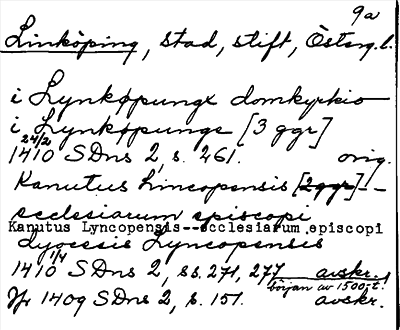 9a
Linköping, stad, stift, Österg.l.
i Lynkøpungx domkyrkio
i Lynkøpunge [3 ggr]
24/2
1410 SDns 2, s. 461. orig.
Kanutus Lincopensis [2ggr] --
ecclesiarum episcopi
Kanutus Lyncopensis--ecclesiarum episcopi
dyocesis Lyncopensis
1/4
1410 SDns 2, ss. 271, 277 avskr.
början av 1500-t.
Jfr 1409 SDns 2, s. 151. avskr.